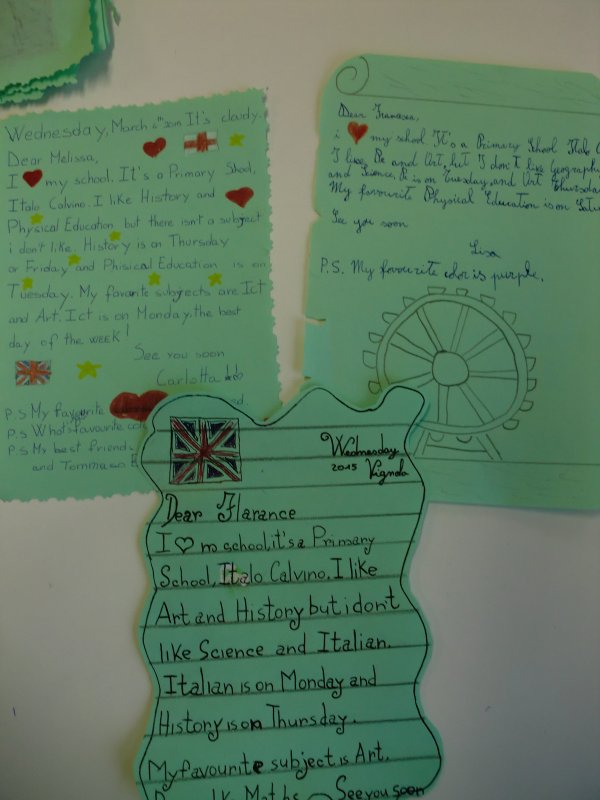 Wednesday, March 4th 2015 It's cloudy.
Dear Melissa,
I my school. It's a Primary Shool,
Italo Calvino. I like History and
Physical Education but there isn't a subject
i don't like. History is on Thursday
or Friday and Phisical Education is on
Tuesday. My favorite subjects are Ict
and Art. Ict is on Monday, the best
day of the week!
See you soon
Carlotta
P.S My favourite
P.S What's favourite
P.S My best friend
and Tommaso
Dear Francesca,
i my school. It's a Primary School Italo
I like Re and Art, but I don't like Geography
and Science. Re is on Tuesday and Art Thursday
My favourite Physical Education is on
See you soon
Lisa
P.S. My favourite color is purple.
Wednesday
2015 Vignola
Dear Flarance
I my school, it's a Primary
School, Italo Calvino. I like
Art and History but i don't
like Science and Italian.
Italian is on Monday and
History is on Thursday.
My favourite subject is Art.
See you soon